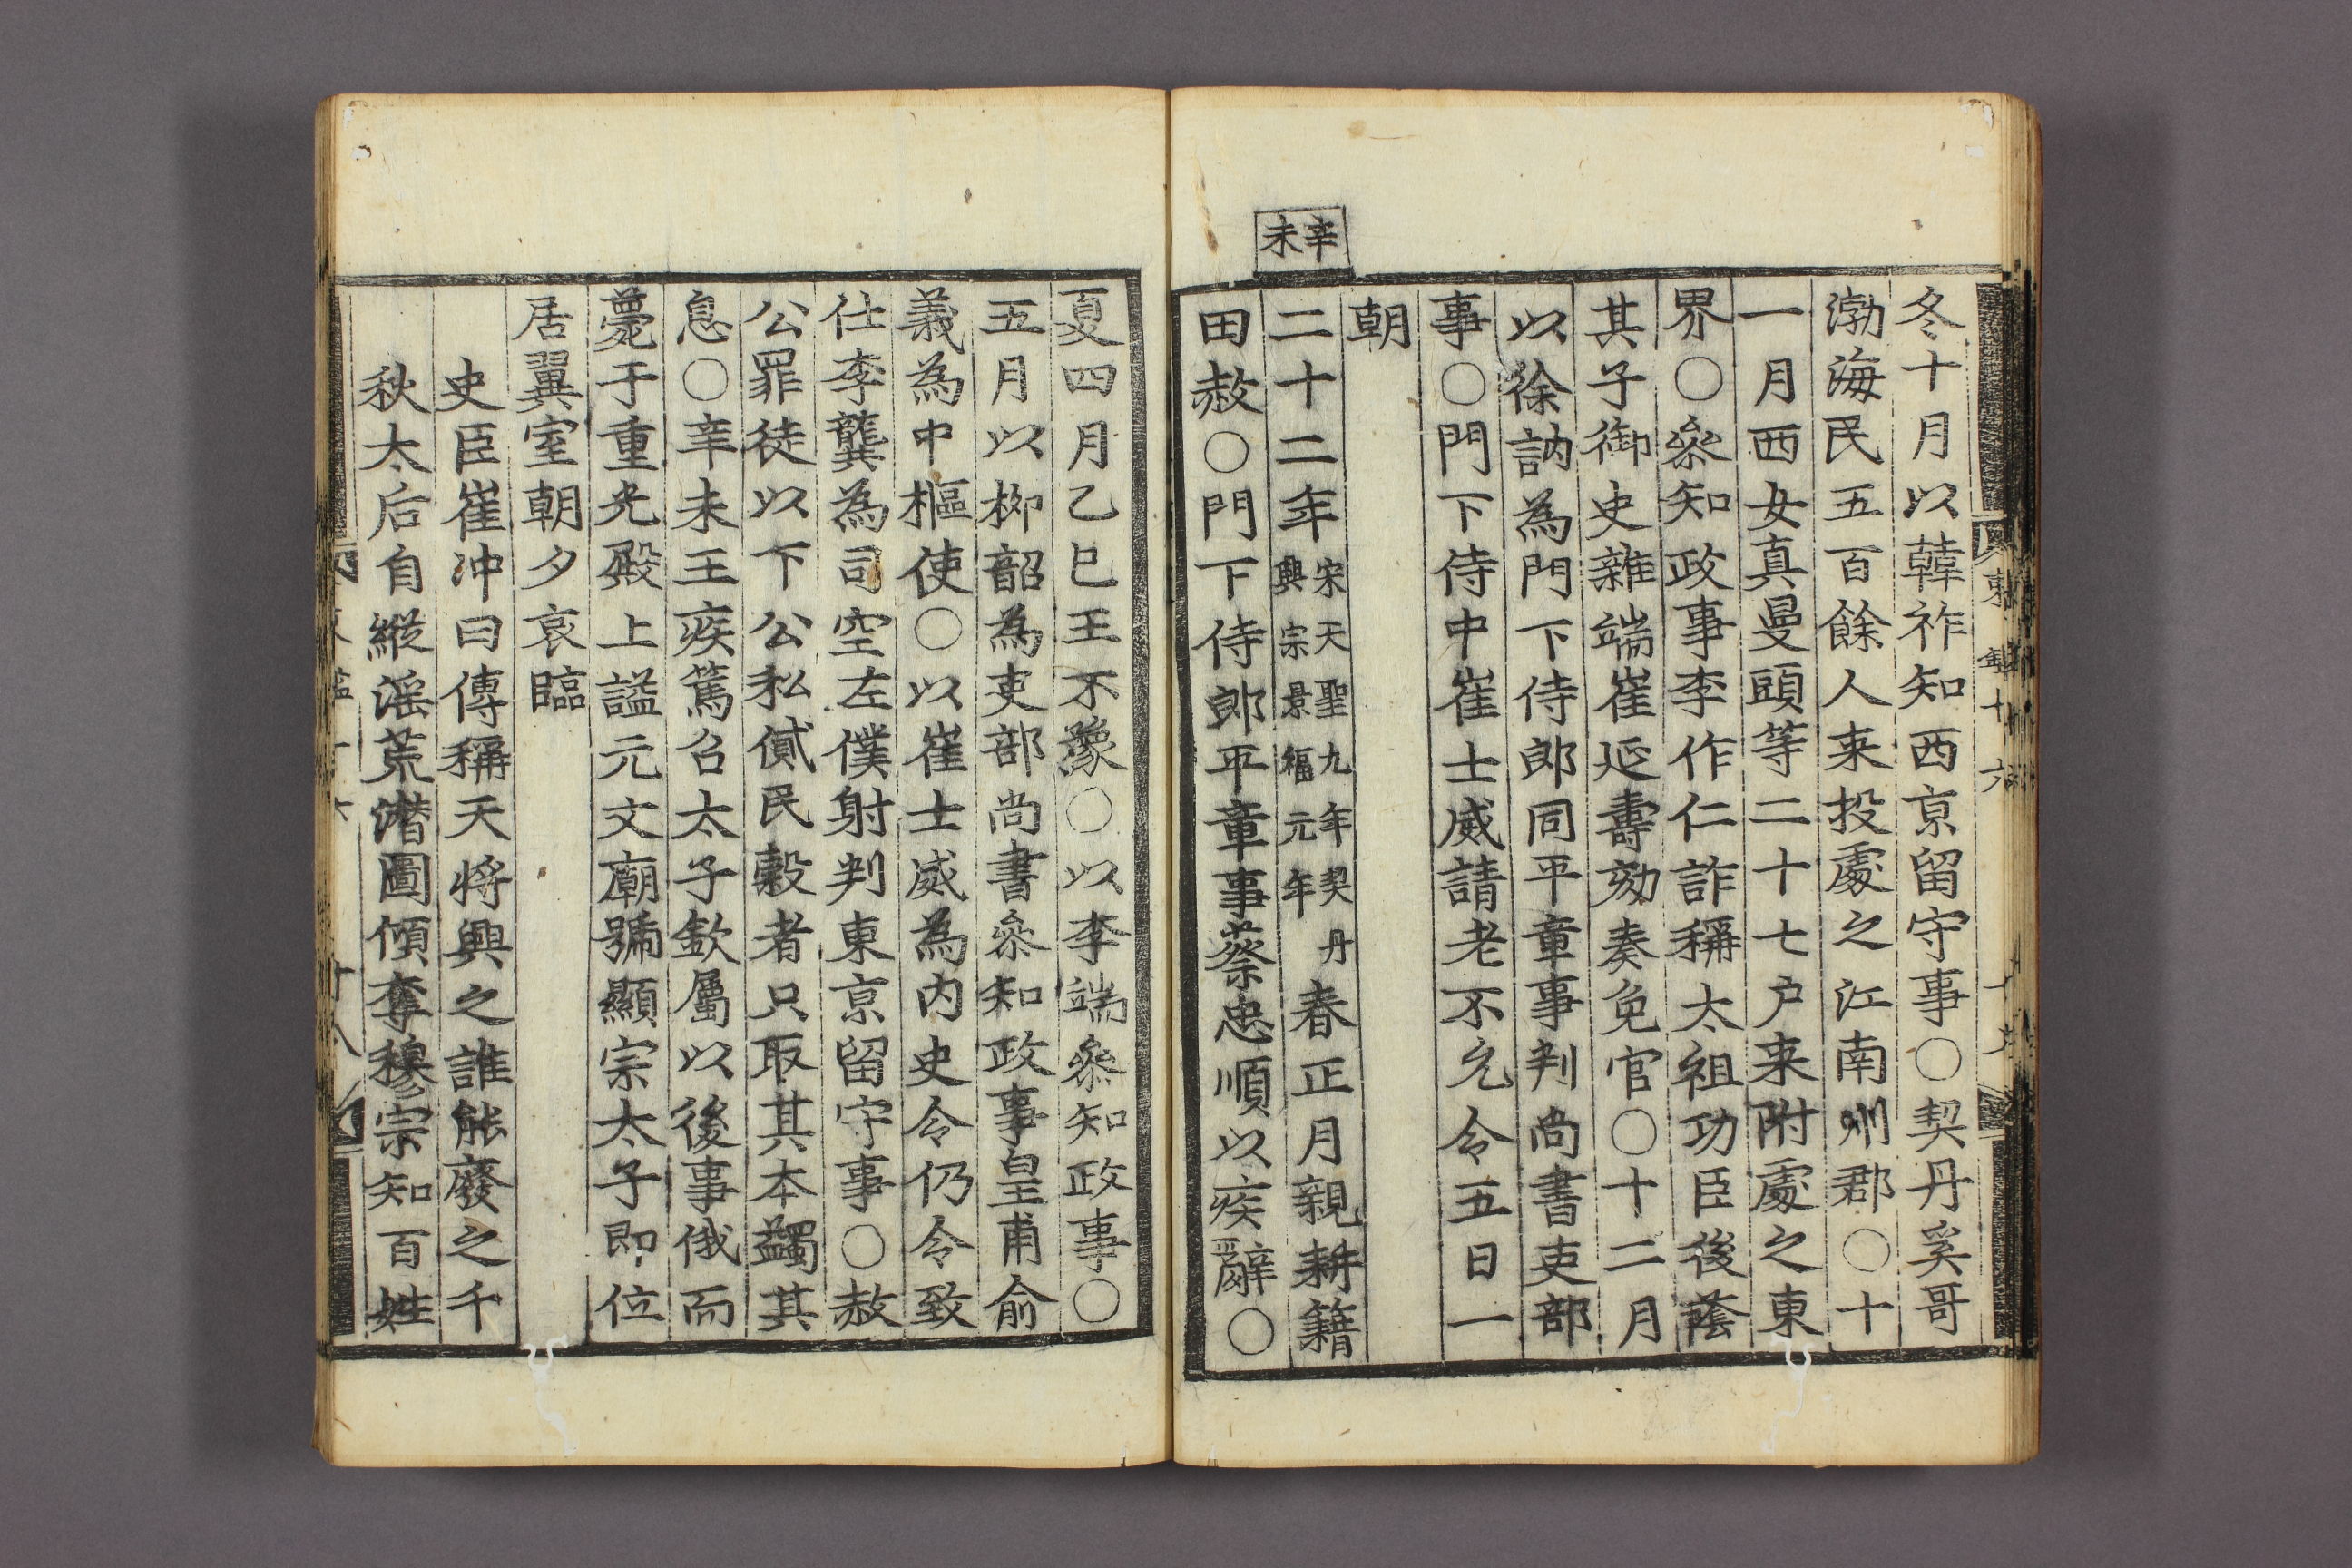 冬十月以韓祚知西京留守事○契丹奚哥
渤海民五百餘人来投處之江南州郡○十
一月西女真曼頭等二十七户来附處之東
界○叅知政事李作仁詐稱太祖功臣後蔭
其子御史雜端崔延壽劾奏免官○十二月
以徐訥為門下侍郎同平章事判尚書吏部
事○門下侍中崔士威請老不允令五日一
朝
辛未
二十二年宋天聖九年契丹興宗景福元年春正月親耕籍
田赦○門下侍郎平章事蔡忠順以疾辭○
夏四月乙巳王不豫○以李端叅知政事○
五月以柳韶為吏部尚書叅知政事皇甫俞
義為中樞使○以崔士威為内史令仍令致
仕李龔為司空左僕射判東京留守事○赦
公罪徒以下公私貣民穀者只取其本蠲其
息○辛未王疾篤召太子欽屬以後事俄而
薨于重光殿上謚元文廟號顯宗太子即位
居翼室朝夕哀臨
史臣崔冲曰傳稱天將興之誰能廢之千
秋太后自縱滛荒濳圖傾奪穆宗知百姓